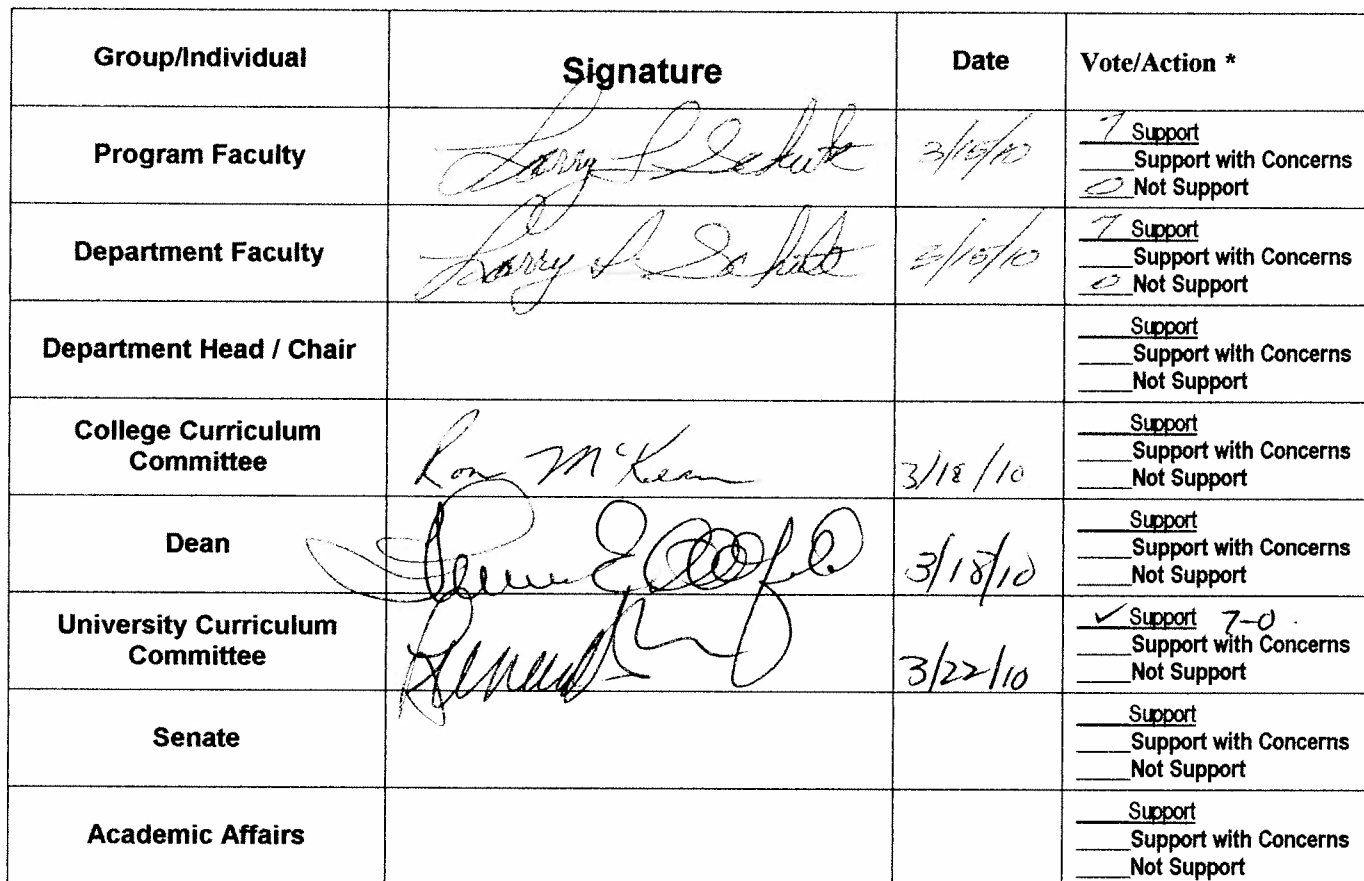 Group/Individual Signature Date Vote/Action *
Program Faculty Larry L Schult 3/15/10
7 Support
____Support with Concerns
0 Not Support
Department Faculty Larry L Schult 3/15/10
7 Support
____Support with Concerns
0 Not Support
Department Head / Chair
____Support
____Support with Concerns
____Not Support
College Curriculum
Committee
Ron McKean 3/18/10
____Support
____Support with Concerns
____Not Support
Dean 3/18/10
____Support
____Support with Concerns
____Not Support
University Curriculum
Committee
3/22/10
✓ Support 7-0
____Support with Concerns
____Not Support
Senate
____Support
____Support with Concerns
____Not Support
Academic Affairs
____Support
____Support with Concerns
____Not Support